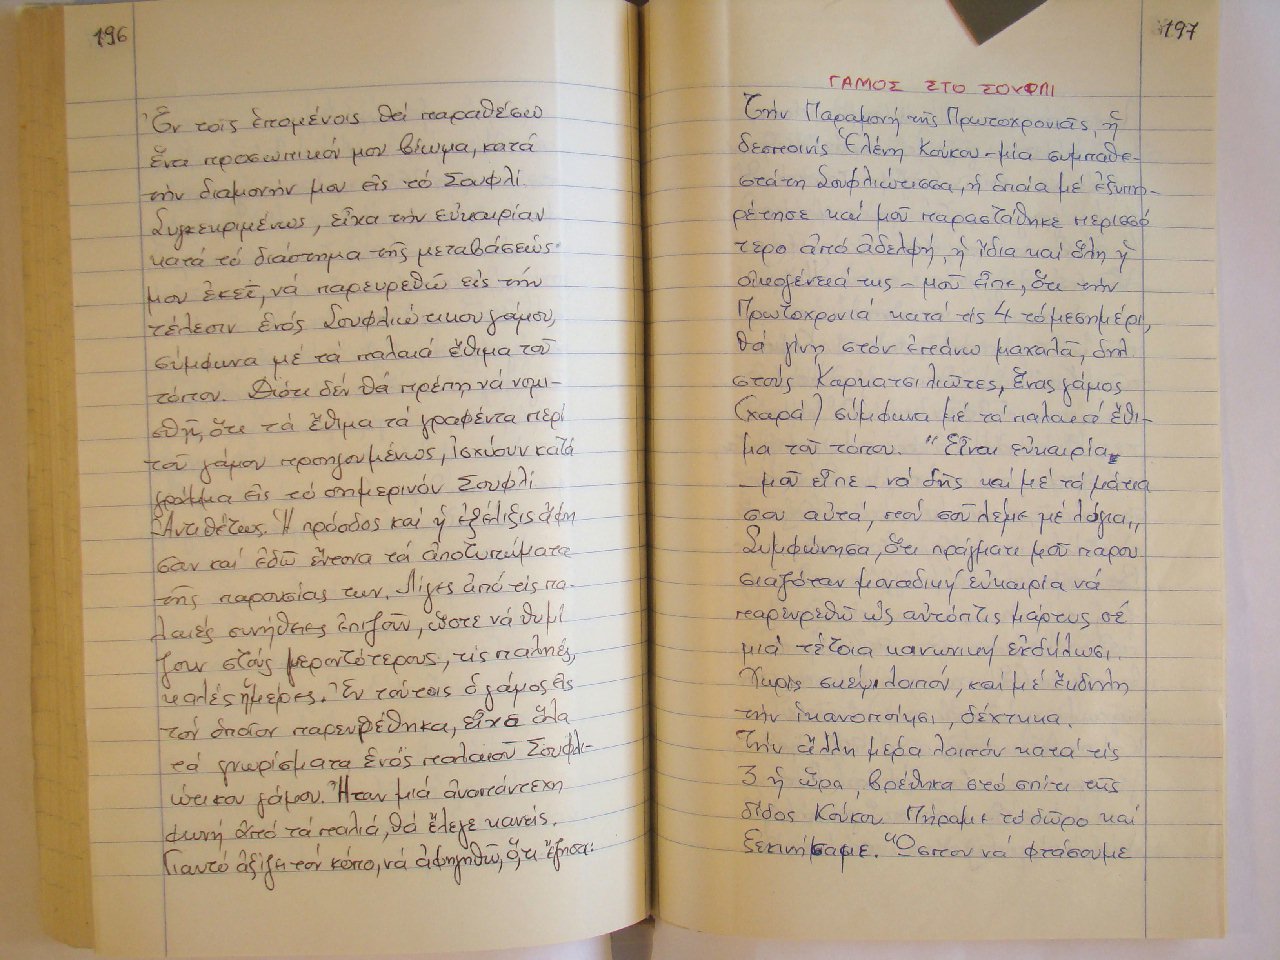 196
Ἐν τοῖς ἑπομένοις θά παραθέσω
ἕνα προσωπικόν μου βίωμα, κατά
τήν διαμονήν μου εἰς τό Σουφλί.
Συγκεκριμένως, εἶχα τήν εὐκαιρίαν
κατά τό διάστημα τῆς μεταβάσεώς
μου ἐκεῖ, νά παρευρεθῶ εἰς τήν
τέλεσιν ἑνός Σουφλιώτικου γάμου,
σύμφωνα μέ τά παλαιά ἔθιμα τοῦ
τόπου. Διότι δέν θά πρέπη νά νομι-
σθῇ, ὅτι τά ἔθιμα τά γραφέντα περί
τοῦ γάμου προηγουμένως, ἰσχύουν κατά
γράμμα εἰς τό σημερινόν Σουφλί
Ἀντιθέτως. Ἡ πρόοδος καί ἡ ἐξέλιξις ἄφη
σαν καί ἐδῶ ἔντονα τά ἀποτυπώματα
τῆς παρουσίας των. Λίγες ἀπό τίς πα-
λαιές συνήθειες ἐπιζοῦν, ὥστε νά θυμί
ζουν στούς γεροντότερους, τίς παληές,
καλές ἡμέρες. Ἐν τούτοις ὁ γάμος εἰς
τόν ὁποῖον παρευρέθηκα, εἶχε ὅλα
τά γνωρίσματα ἑνός παλαιοῦ Σουφλι-
ώτικου γάμου. Ἦταν μιά ἀναπάντεχη
φωνή ἀπό τά παλιά, θά ἔλεγε κανείς.
Γιαυτό ἀξίζει τόν κόπο, νά ἀφηγηθῶ, ὅ,τι ἔζησα:
197
ΓΑΜΟΣ ΣΤΟ ΣΟΥΦΛΙ
Τήν Παραμονή τῆς Πρωτοχρονιᾶς, ἡ
δεσποινίς Ἑλένη Κούκου - μία συμπαθε-
στάτη Σουφλιώτισσα, ἡ ὁποία μέ ἐξυπη-
ρέτησε καί μοῦ παραστάθηκε περισσό
τερο ἀπό ἀδελφή, ἡ ἴδια καί ὅλη ἡ
οἰκογένειά της - μοῦ εἶπε, ὅτι τήν
Πρωτοχρονιά κατά τίς 4 τό μεσημέρι,
θά γίνη στόν ἐπάνω μαχαλᾶ, δηλ.
στούς Καρκατσιλιῶτες, ἕνας γάμος
(χαρά) σύμφωνα μέ τά παλαιά ἔθι-
μα τοῦ τόπου. "Εἶναι εὐκαιρία
- μοῦ εἶπε - νά δῆς καί μέ τά μάτια
σου αὐτά, πού σοῦ λέμε μέ λόγια„
Συμφώνησα, ὅτι πράγματι μοῦ παρου
σιαζόταν μοναδική εὐκαιρία νά
παρευρεθῶ ὡς αὐτόπτις μάρτυς σέ
μιά τέτοια κανωνική ἐκδήλωσι.
Χωρίς σκέψι λοιπόν, καί μέ ἔκδηλη
τήν ἱκανοποίησι, δέχτηκα.
Τήν ἄλλη μέρα λοιπόν κατά τίς
3 ἡ ὥρα, βρέθηκα στό σπίτι τῆς
δίδος Κούκου. Πήραμε τό δῶρο καί
ξεκινήσαμε. Ὥσπου νά φτάσουμε